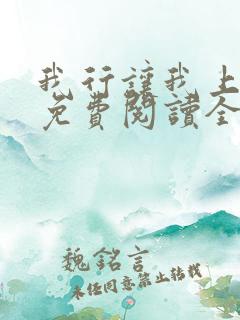 我行讓我上
免費閱讀全
魏銘言
未经同意禁止转载